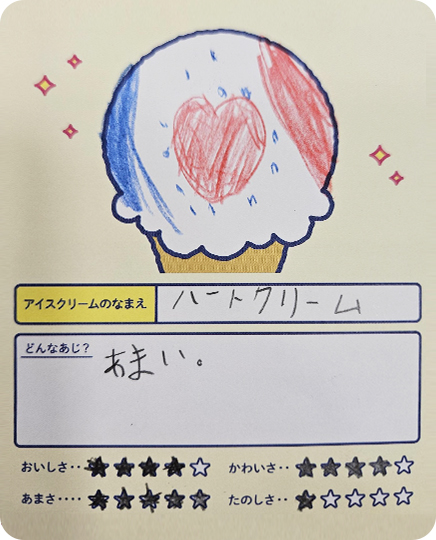 アイスクリームのなまえ ハートクリーム
どんなあじ?
あまい。
おいしさ‥★★★★☆ かわいさ‥★★★★☆
あまさ‥‥★★★★★ たのしさ‥★☆☆☆☆